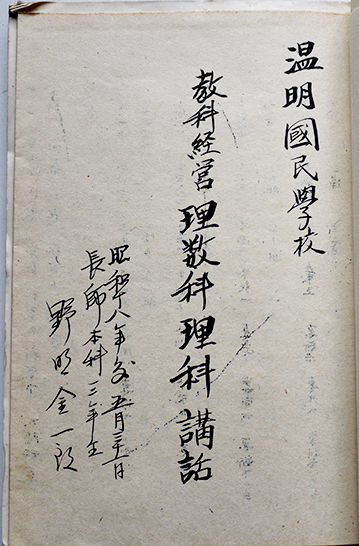 温明國民學校
教科経営理数科理科講話
昭和十八年 五月三十一日
長師本科三年生
野 金一郎